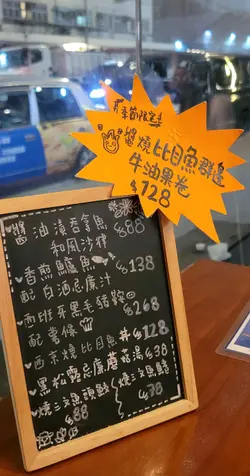 季節限定
醬燒比目魚群邊
牛油果卷
$128
醬油漬吞拿魚
和風沙律 $88
香煎鱸魚 $138
配白酒忌廉汁
西班牙黑毛豬鞍 $268
配當係
西京燒比目魚丼 $128
黑松露忌廉蘑菇湯 $38
燒三文魚頭
$88
燒三文魚
$78